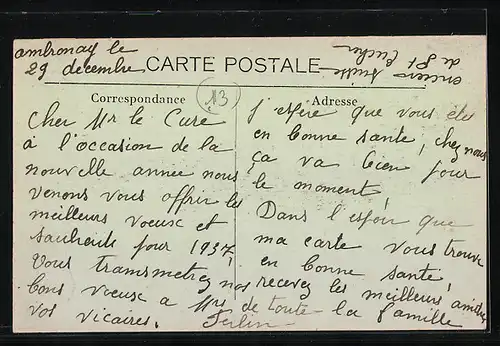 ambronay le
29 decembre
CARTE POSTALE
ancien
de St
Correspondance
13
Adresse
Cher Mr le Cure
à l'occasion de la
nouvelle annee nous
venons vous offrir les
meilleurs voeux et
pour 1937
Vous transmetrez nos
bons voeux a Mrs
vos vicaires.
j'espere que vous etes
en bonne santé, chez nous
ça va bien pour
le moment
Dans l'espoir que
ma carte vous trouve
en bonne santé,
recevez les meilleurs amitiés
de toute la famille